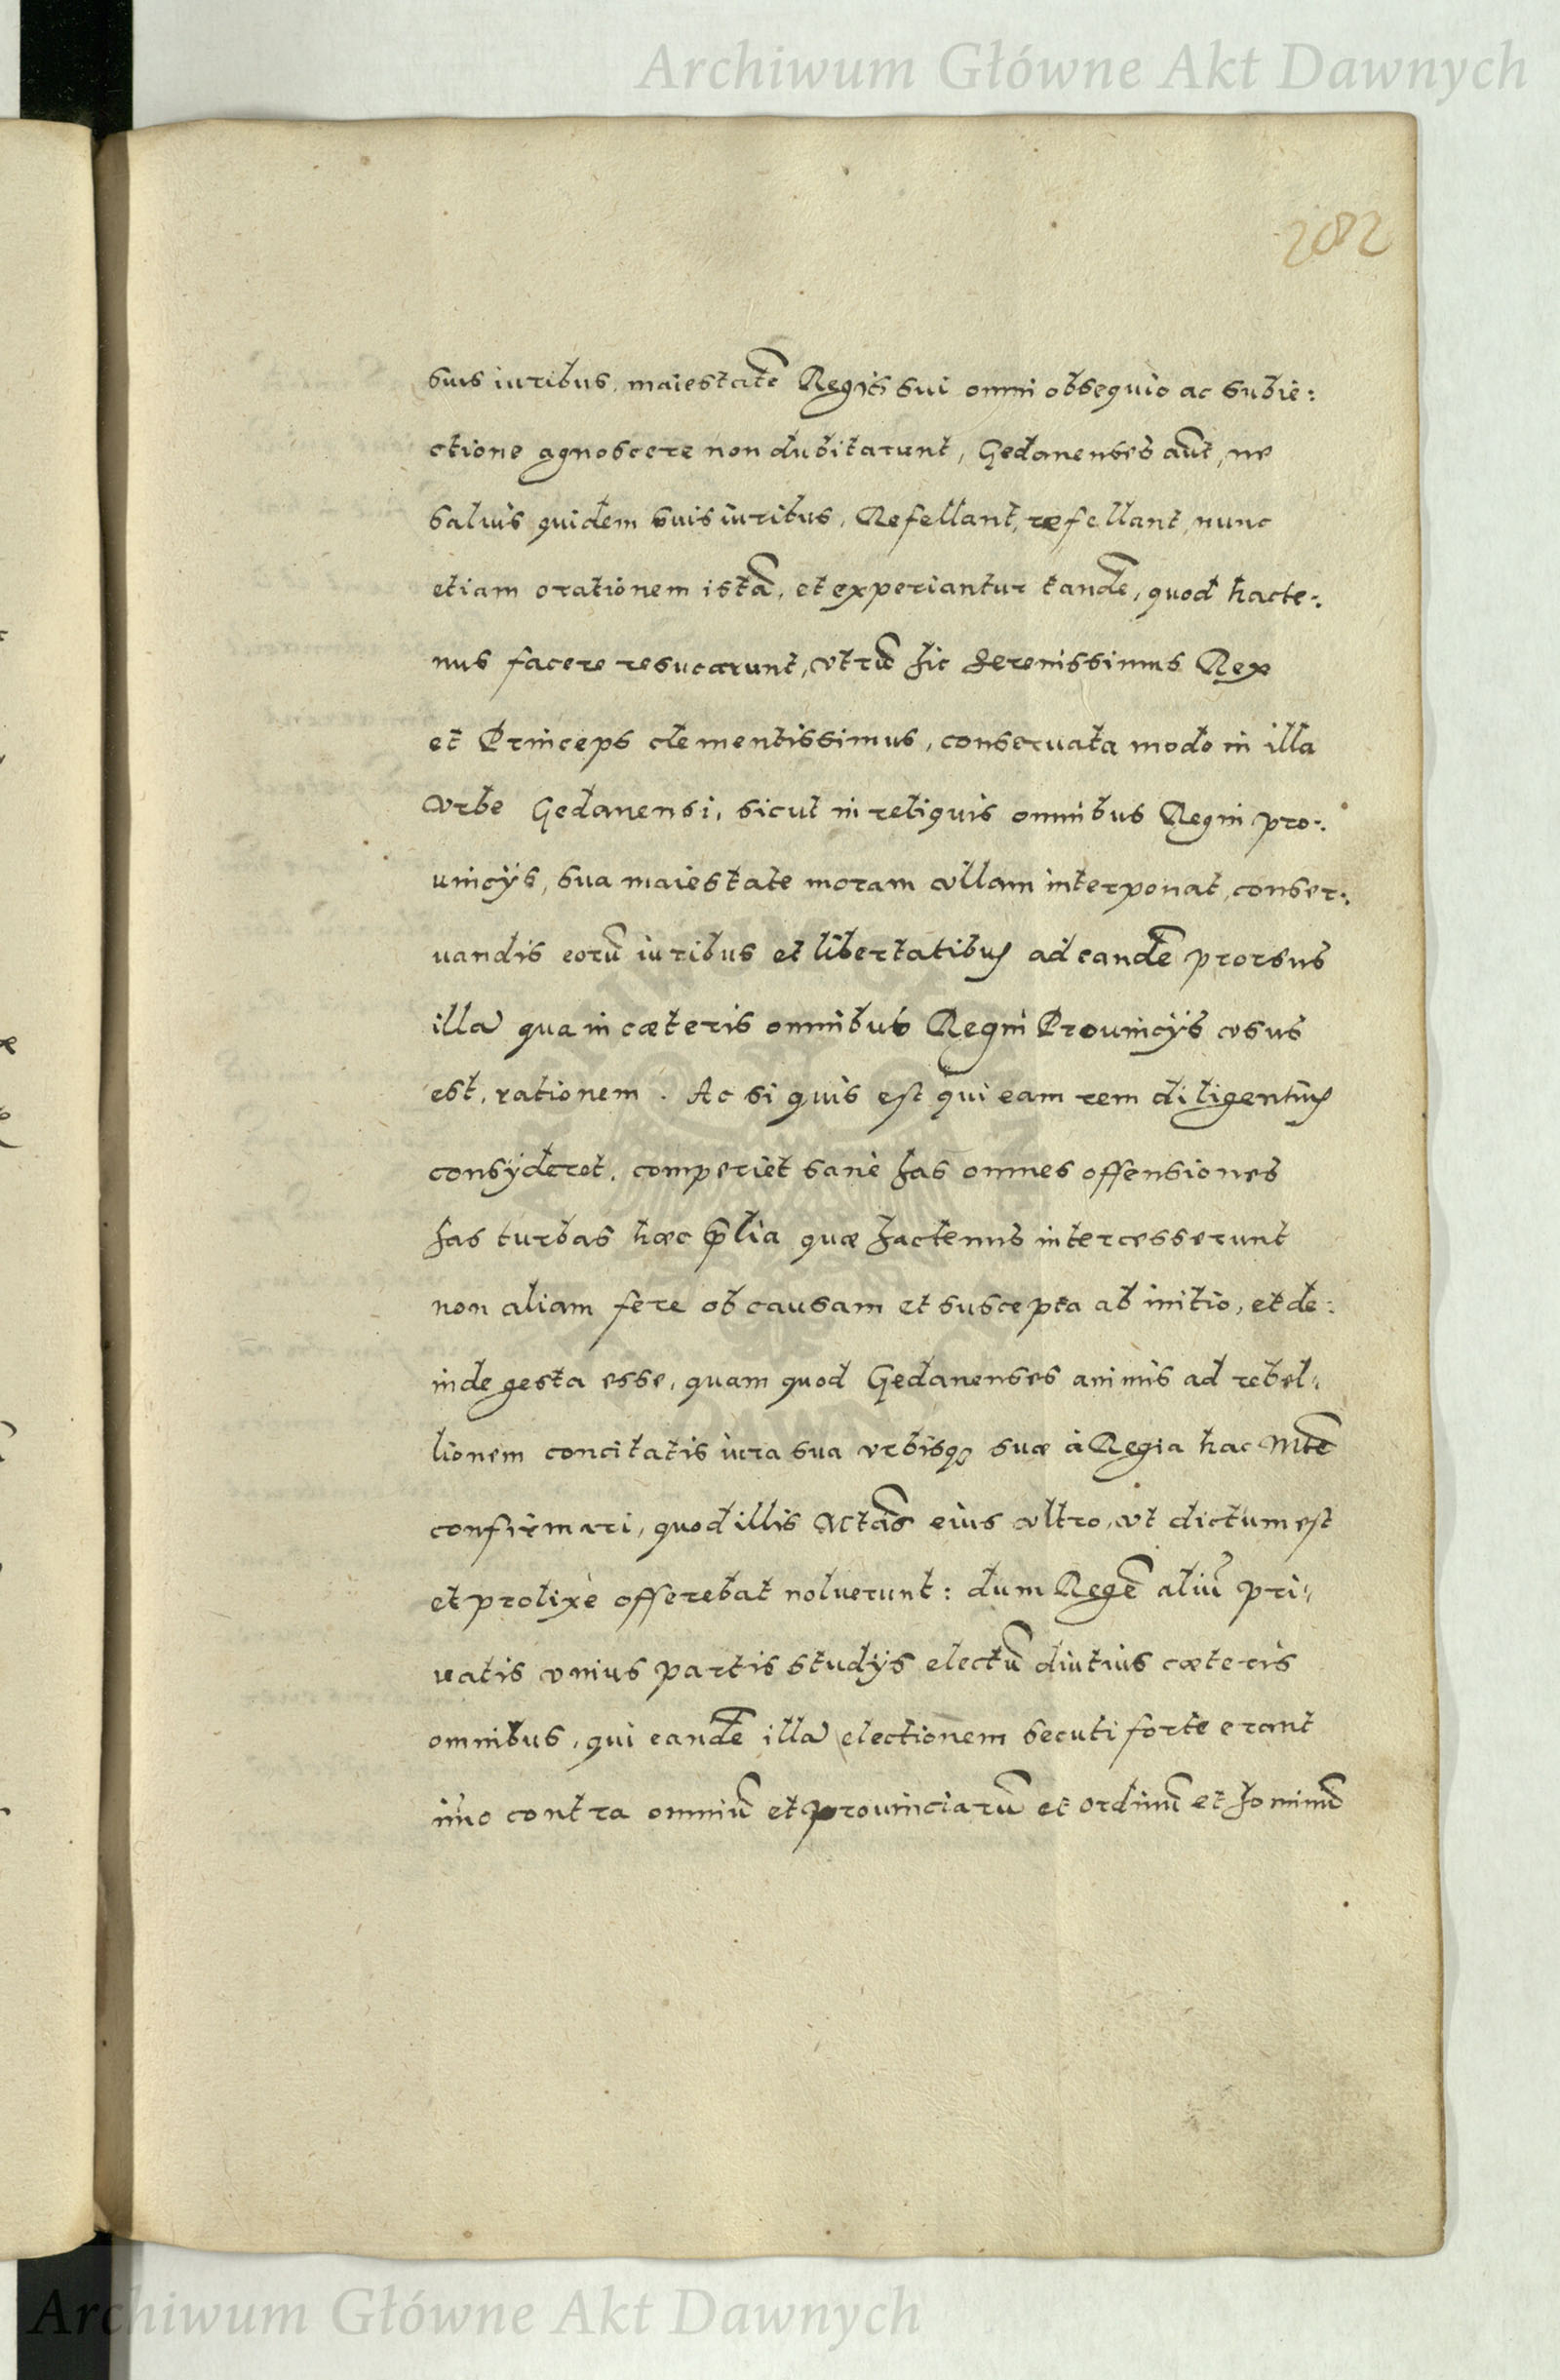 Archiwum Główne Akt Dawnych
282
suis iuribus, maiestatē Regis sui omni obsequio ac subie:
ctione agnoscere non dubitarunt, Gedanenses aūt, ne
saluis quidem suis iuribus, Refellant, refellant, nunc
etiam orationem istā, et experiantur tandē, quod hacte:
nus facere resucarunt, vtrū hic Serenissimus Rex
et Princeps clementissimus, conseruata modo in illa
vrbe Gedanensi, sicut in reliquis omnibus Regni pro:
uincijs, sua maiestate moram vllam interponat, conser:
uandis eorū iuribus et libertatibus ad eandē prorsus
illā qua in cæteris omnibus Regni Prouincijs vsus
est, rationem. Ac si quis est qui eam rem diligentius
consyderet, comperiet sanè has omnes offensiones
has turbas hæc p̄lia quæ hactenus intercesserunt
non aliam fere ob causam et suscepta ab initio, et de:
inde gesta esse, quam quod Gedanenses animis ad rebel:
lionem concitatis iura sua vrbisq; suæ à Regia hac Mtē
confirmari, quod illis Mtās eius vltro, vt dictum est
et prolixè offerebat noluerunt: dum Regē aliū pri:
uatis vnius partis studijs electū diutius cæteris
omnibus, qui eandē illā electionem secuti forte erant
im̄o contra omniū et prouinciarū et ordinū et hominū
Archiwum Główne Akt Dawnych